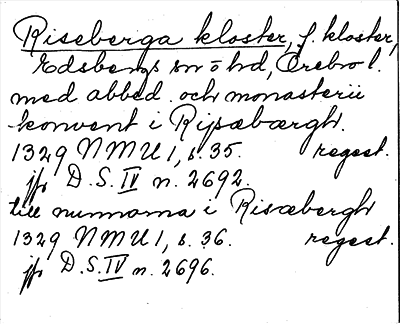 Riseberga kloster, f. kloster,
Edsbergs sn o hd, Örebro l.
med abbed. och monasterii
konvent i Ripsæbærgh.
1329 NMU 1, s. 35. regest.
jfr D.S. IV n. 2692.
till nunnorna i Risæbergh
1329 NMU 1, s. 36. regest.
jfr D.S. IV n. 2696.